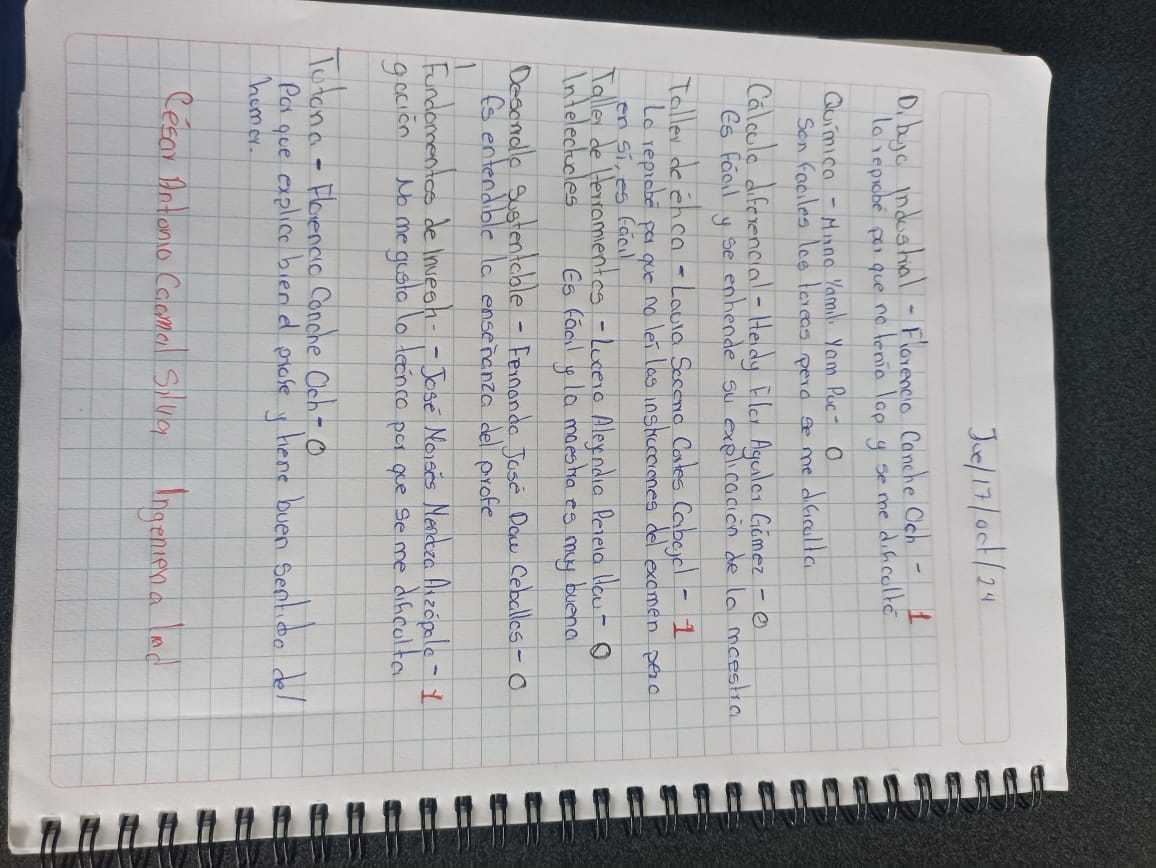 Jue/17/oct/24
Dibujo Industrial - Florencio Canche Och - 1
lo reprobé por que no tenía lap y se me dificultó
Química - Minna Yamili Yam Puc - 0
Son faciles las tareas pero se me dificulta
Cálculo diferencial - Heidy Flor Aguilar Gómez - 0
Es fácil y se entiende su explicación de la maestra
Taller de ética - Laura Socorro Cortes Cabayol - 1
Lo reprobé por que no leí las instrucciones del examen pero
en sí, es fácil
Taller de Herramientas - Lucero Alejandra Perera Hau - 0
Intelectuales Es fácil y la maestra es my buena
Desarrollo Sustentable - Fernando José Daw Ceballos - 0
Es entendible la enseñanza del profe
Fundamentos de Investi- - José Moisés Mendoza - 1
gación No me gusta lo teórico por que se me dificulta
Tutoria - Florencio Canche Och - 0
Por que explica bien el profe y tiene buen sentido del
homor.
César Antonio Caamal Silva Ingenieria Ind